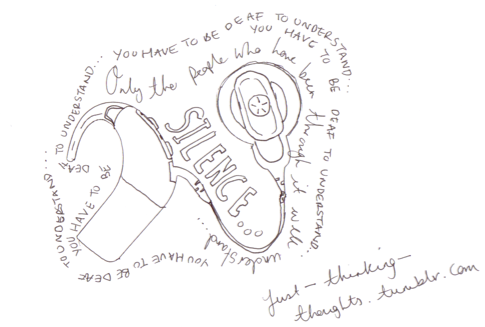 YOU HAVE TO BE DEAF TO UNDERSTAND...
YOU HAVE TO BE DEAF TO UNDERSTAND...
YOU HAVE TO BE DEAF TO UNDERSTAND...
YOU HAVE TO BE DEAF TO UNDERSTAND...
Only the people who have been through it will understand...
SILENCE
just-thinking-
thoughts.tumblr.com